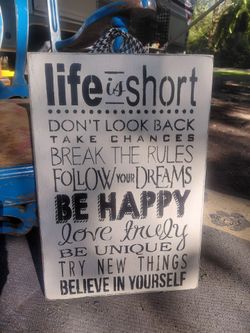 life is short
DON'T LOOK BACK
TAKE CHANCES
BREAK THE RULES
FOLLOW YOUR DREAMS
BE HAPPY
love truly
BE UNIQUE
TRY NEW THINGS
BELIEVE IN YOURSELF